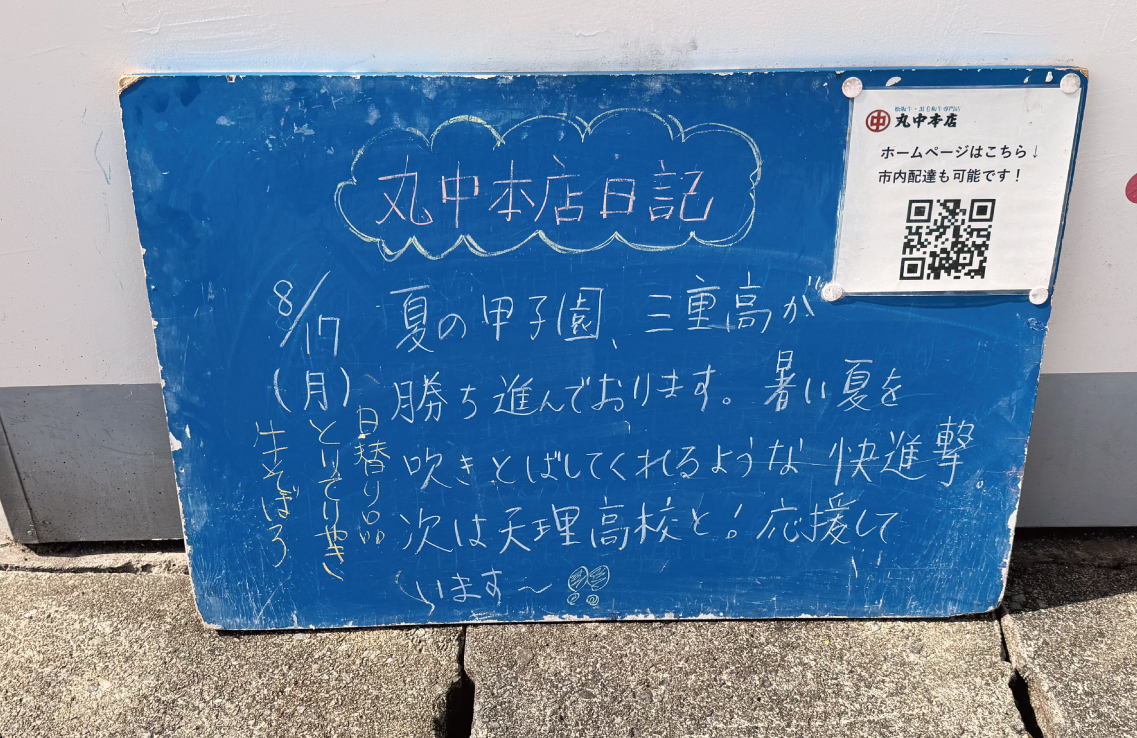 丸中本店日記
8/17
(月)
夏の甲子園、三重高が
勝ち進んでおります。暑い夏を
吹きとばしてくれるような快進撃。
次は天理高校と!応援して
います〜!!
日替り品
とりてりやき
牛そぼろ
松阪牛・黒毛和牛専門店
中 丸中本店
ホームページはこちら↓
市内配達も可能です!